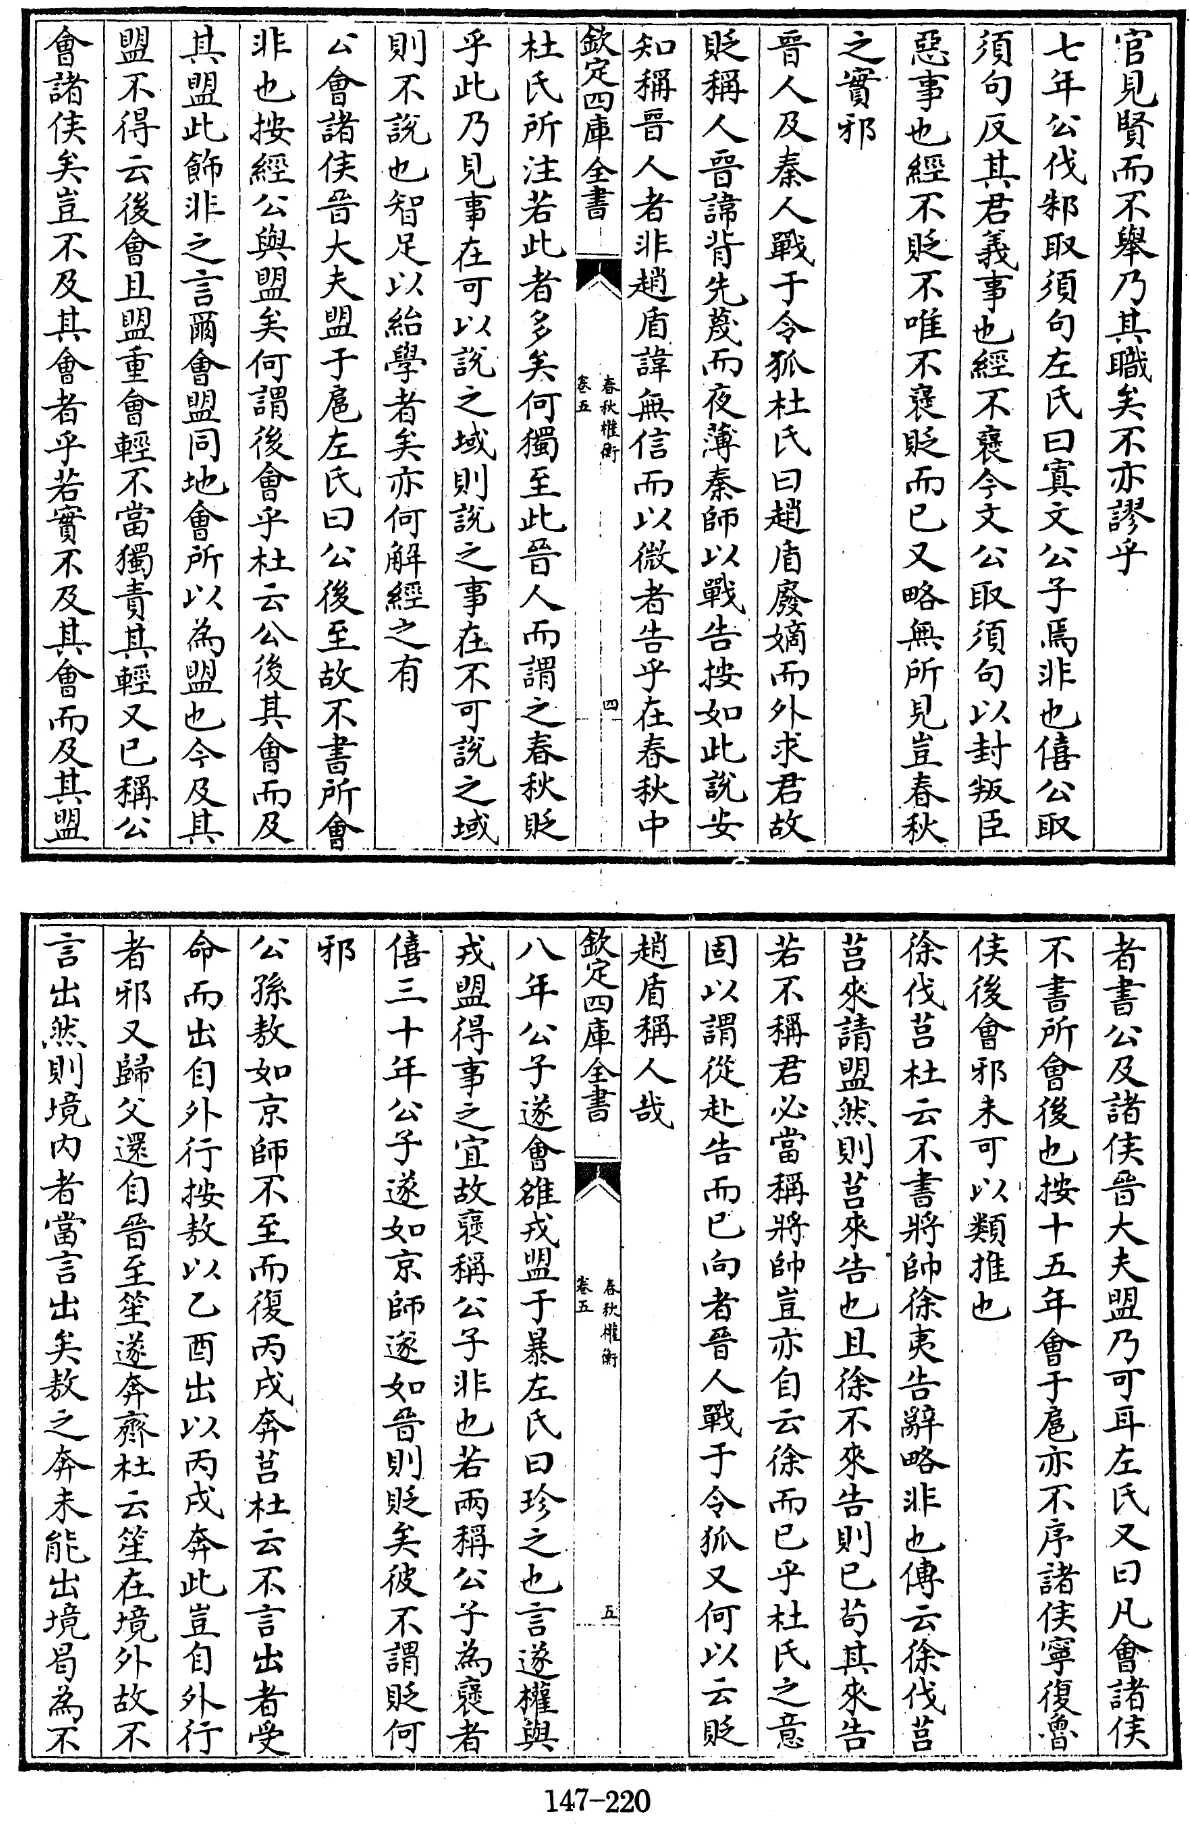 官見賢而不舉乃其職矣不亦謬乎
七年公伐邾取須句左氏曰寘文公子焉非也僖公取
須句反其君義事也經不襃今文公取須句以封叛臣
惡事也經不貶不唯不襃貶而已又略無所見豈春秋
之實邪
晉人及秦人戰于令狐杜氏曰趙盾廢嫡而外求君故
貶稱人晉諱背先蔑而夜薄秦師以戰告按如此說安
知稱晉人者非趙盾諱無信而以微者告乎在春秋中
欽定四庫全書
春秋權衡
卷五
四
杜氏所注若此者多矣何獨至此晉人而謂之春秋貶
乎此乃見事在可以說之域則說之事在不可說之域
則不說也智足以紿學者矣亦何解經之有
公會諸侯晉大夫盟于扈左氏曰公後至故不書所會
非也按經公與盟矣何謂後會乎杜云公後其會而及
其盟此飾非之言爾會盟同地會所以為盟也今及其
盟不得云後會且盟重會輕不當獨責其輕又已稱公
會諸侯矣豈不及其會者乎若實不及其會而及其盟
者書公及諸侯晉大夫盟乃可耳左氏又曰凡會諸侯
不書所會後也按十五年會于扈亦不序諸侯寧復魯
侯後會邪未可以類推也
徐伐莒杜云不書將帥徐夷告辭略非也傳云徐伐莒
莒來請盟然則莒來告也且徐不來告則已苟其來告
若不稱君必當稱將帥豈亦自云徐而已乎杜氏之意
固以謂從赴告而已向者晉人戰于令狐又何以云貶
趙盾稱人哉
欽定四庫全書
春秋權衡
卷五
五
八年公子遂會雒戎盟于暴左氏曰珍之也言遂權與
戎盟得事之宜故襃稱公子非也若兩稱公子為襃者
僖三十年公子遂如京師遂如晉則貶矣彼不謂貶何
邪
公孫敖如京師不至而復丙戌奔莒杜云不言出者受
命而出自外行按敖以乙酉出以丙戌奔此豈自外行
者邪又歸父還自晉至笙遂奔齊杜云笙在境外故不
言出然則境內者當言出矣敖之奔未能出境曷為不
147-220